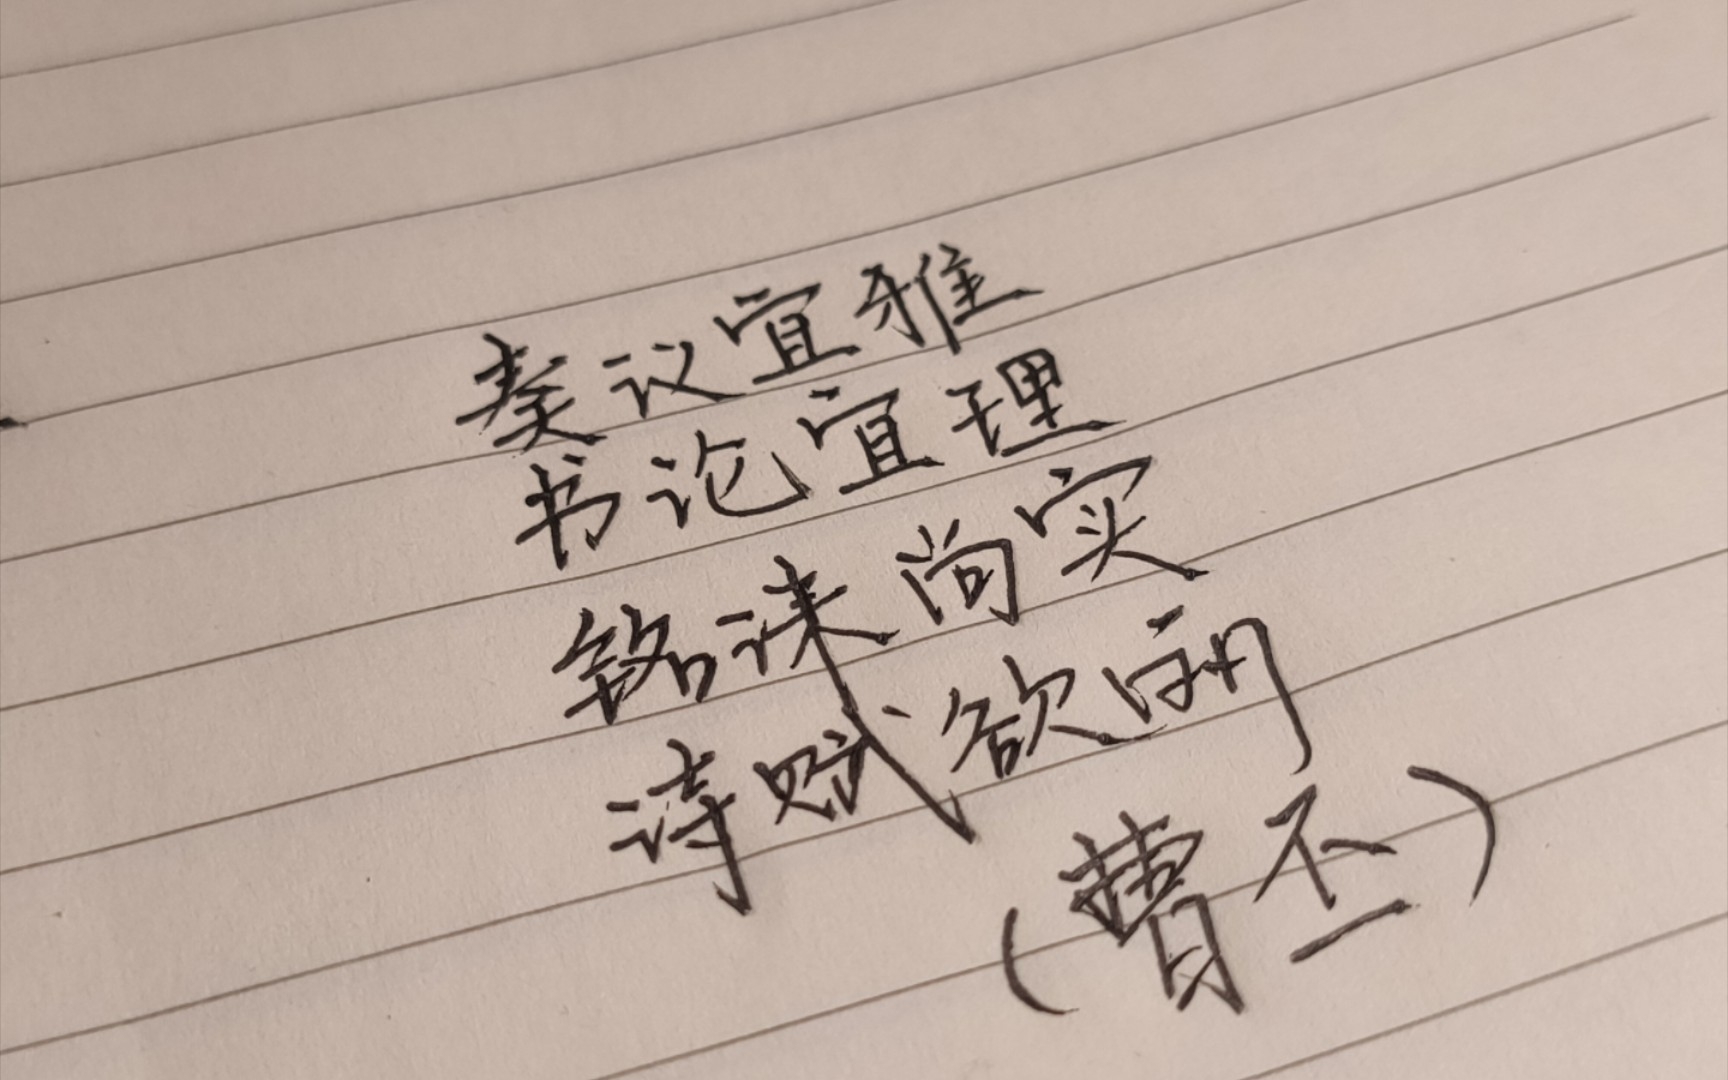 奏议宜雅
书论宜理
铭诔尚实
诗赋欲丽
(曹丕)